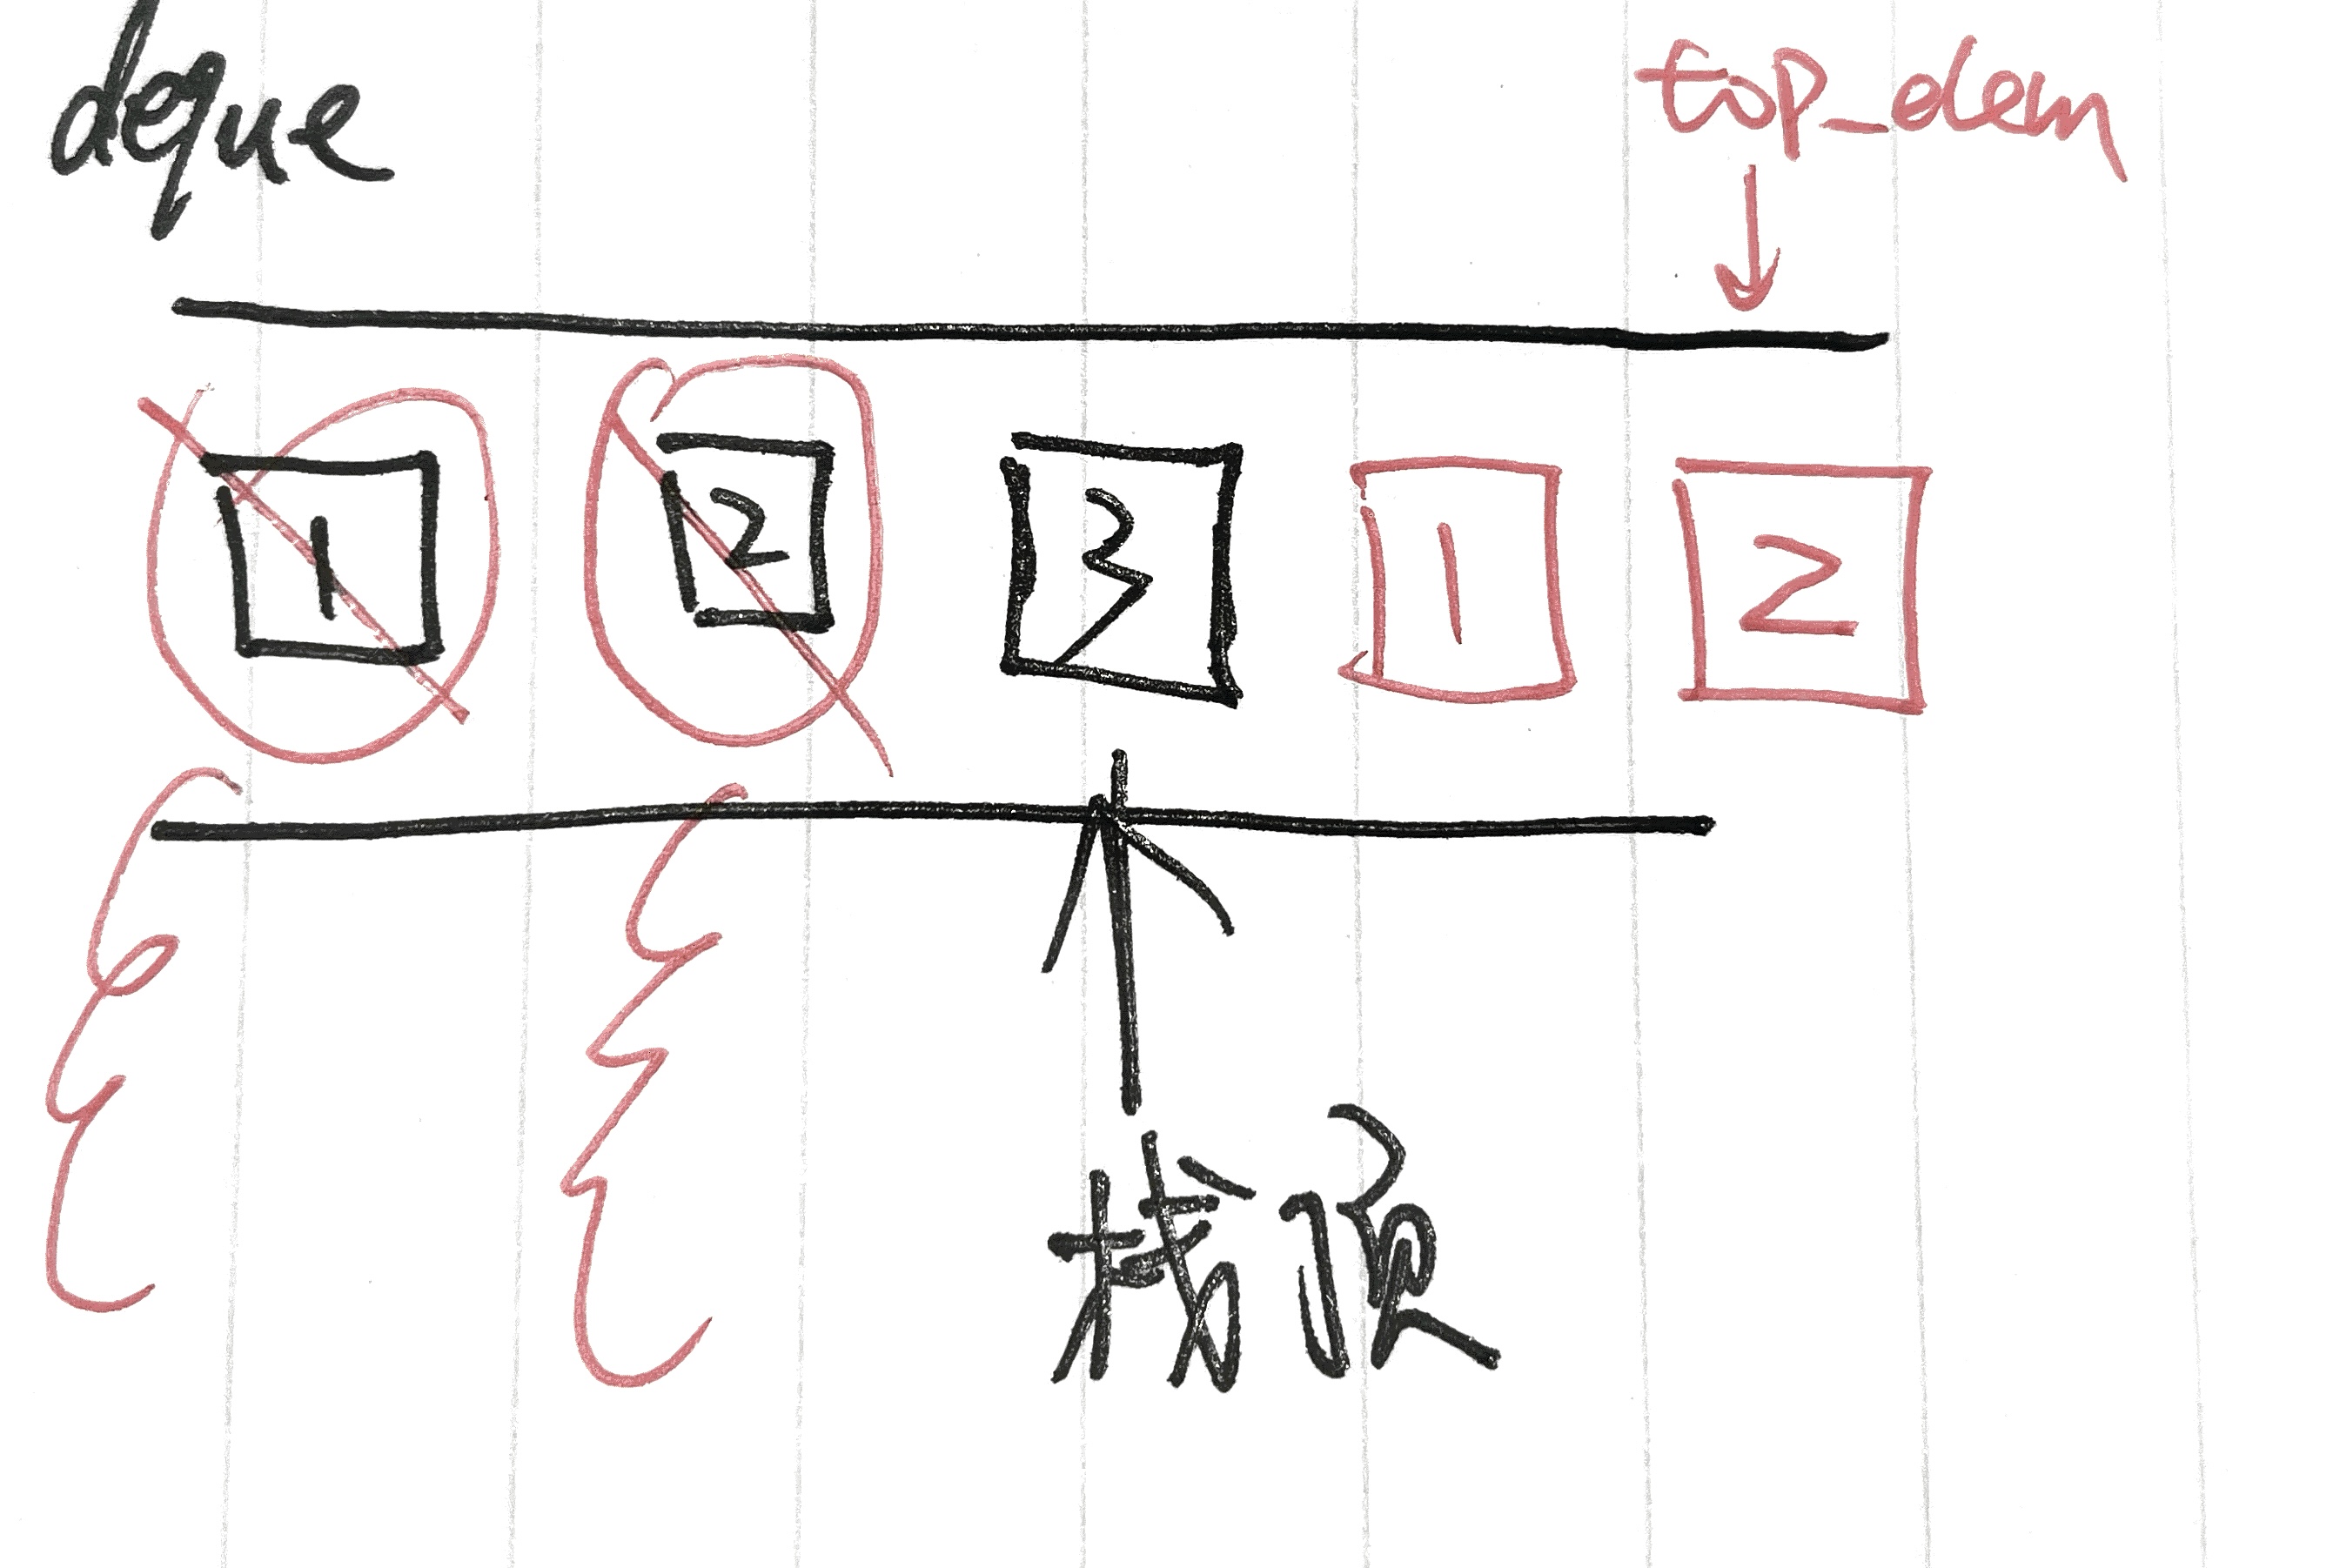 deque
top_elem
1 2 3 1 2
栈顶